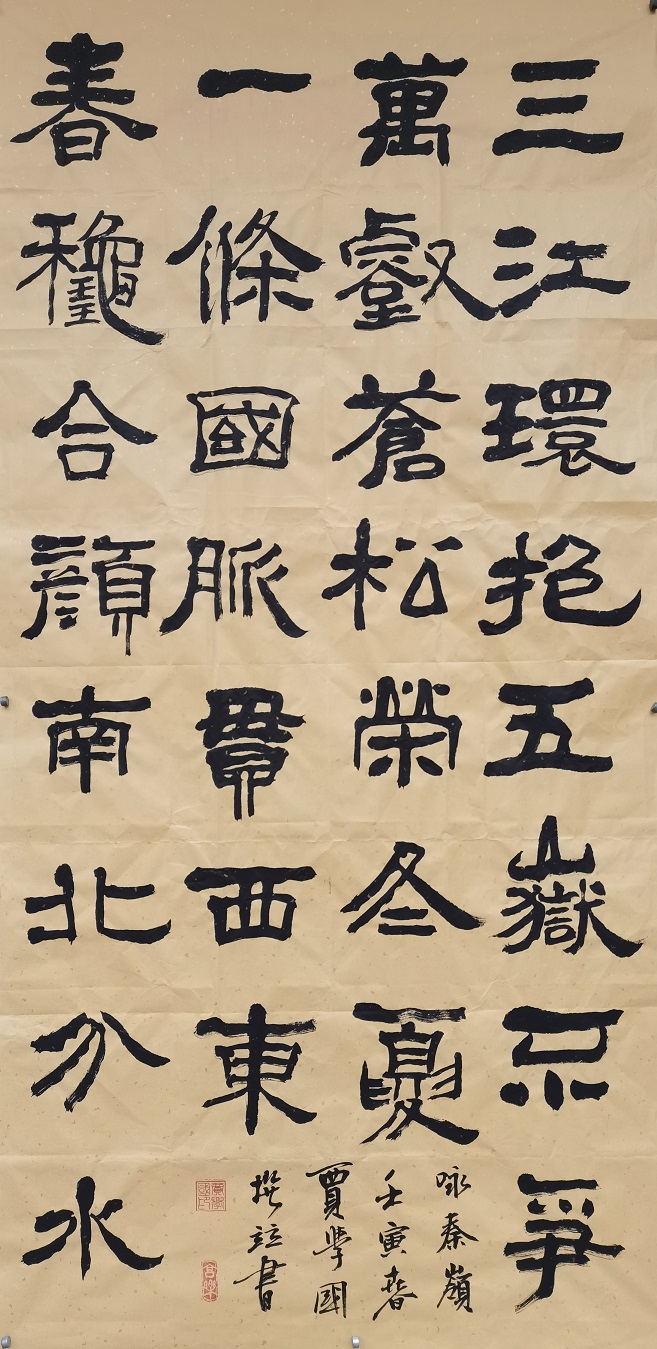 三江環抱五嶽不爭
萬壑蒼松榮冬夏
一條國脈貫西東
春龝合顏南北分水
咏秦嶺
壬寅春
賈學國
撰竝書